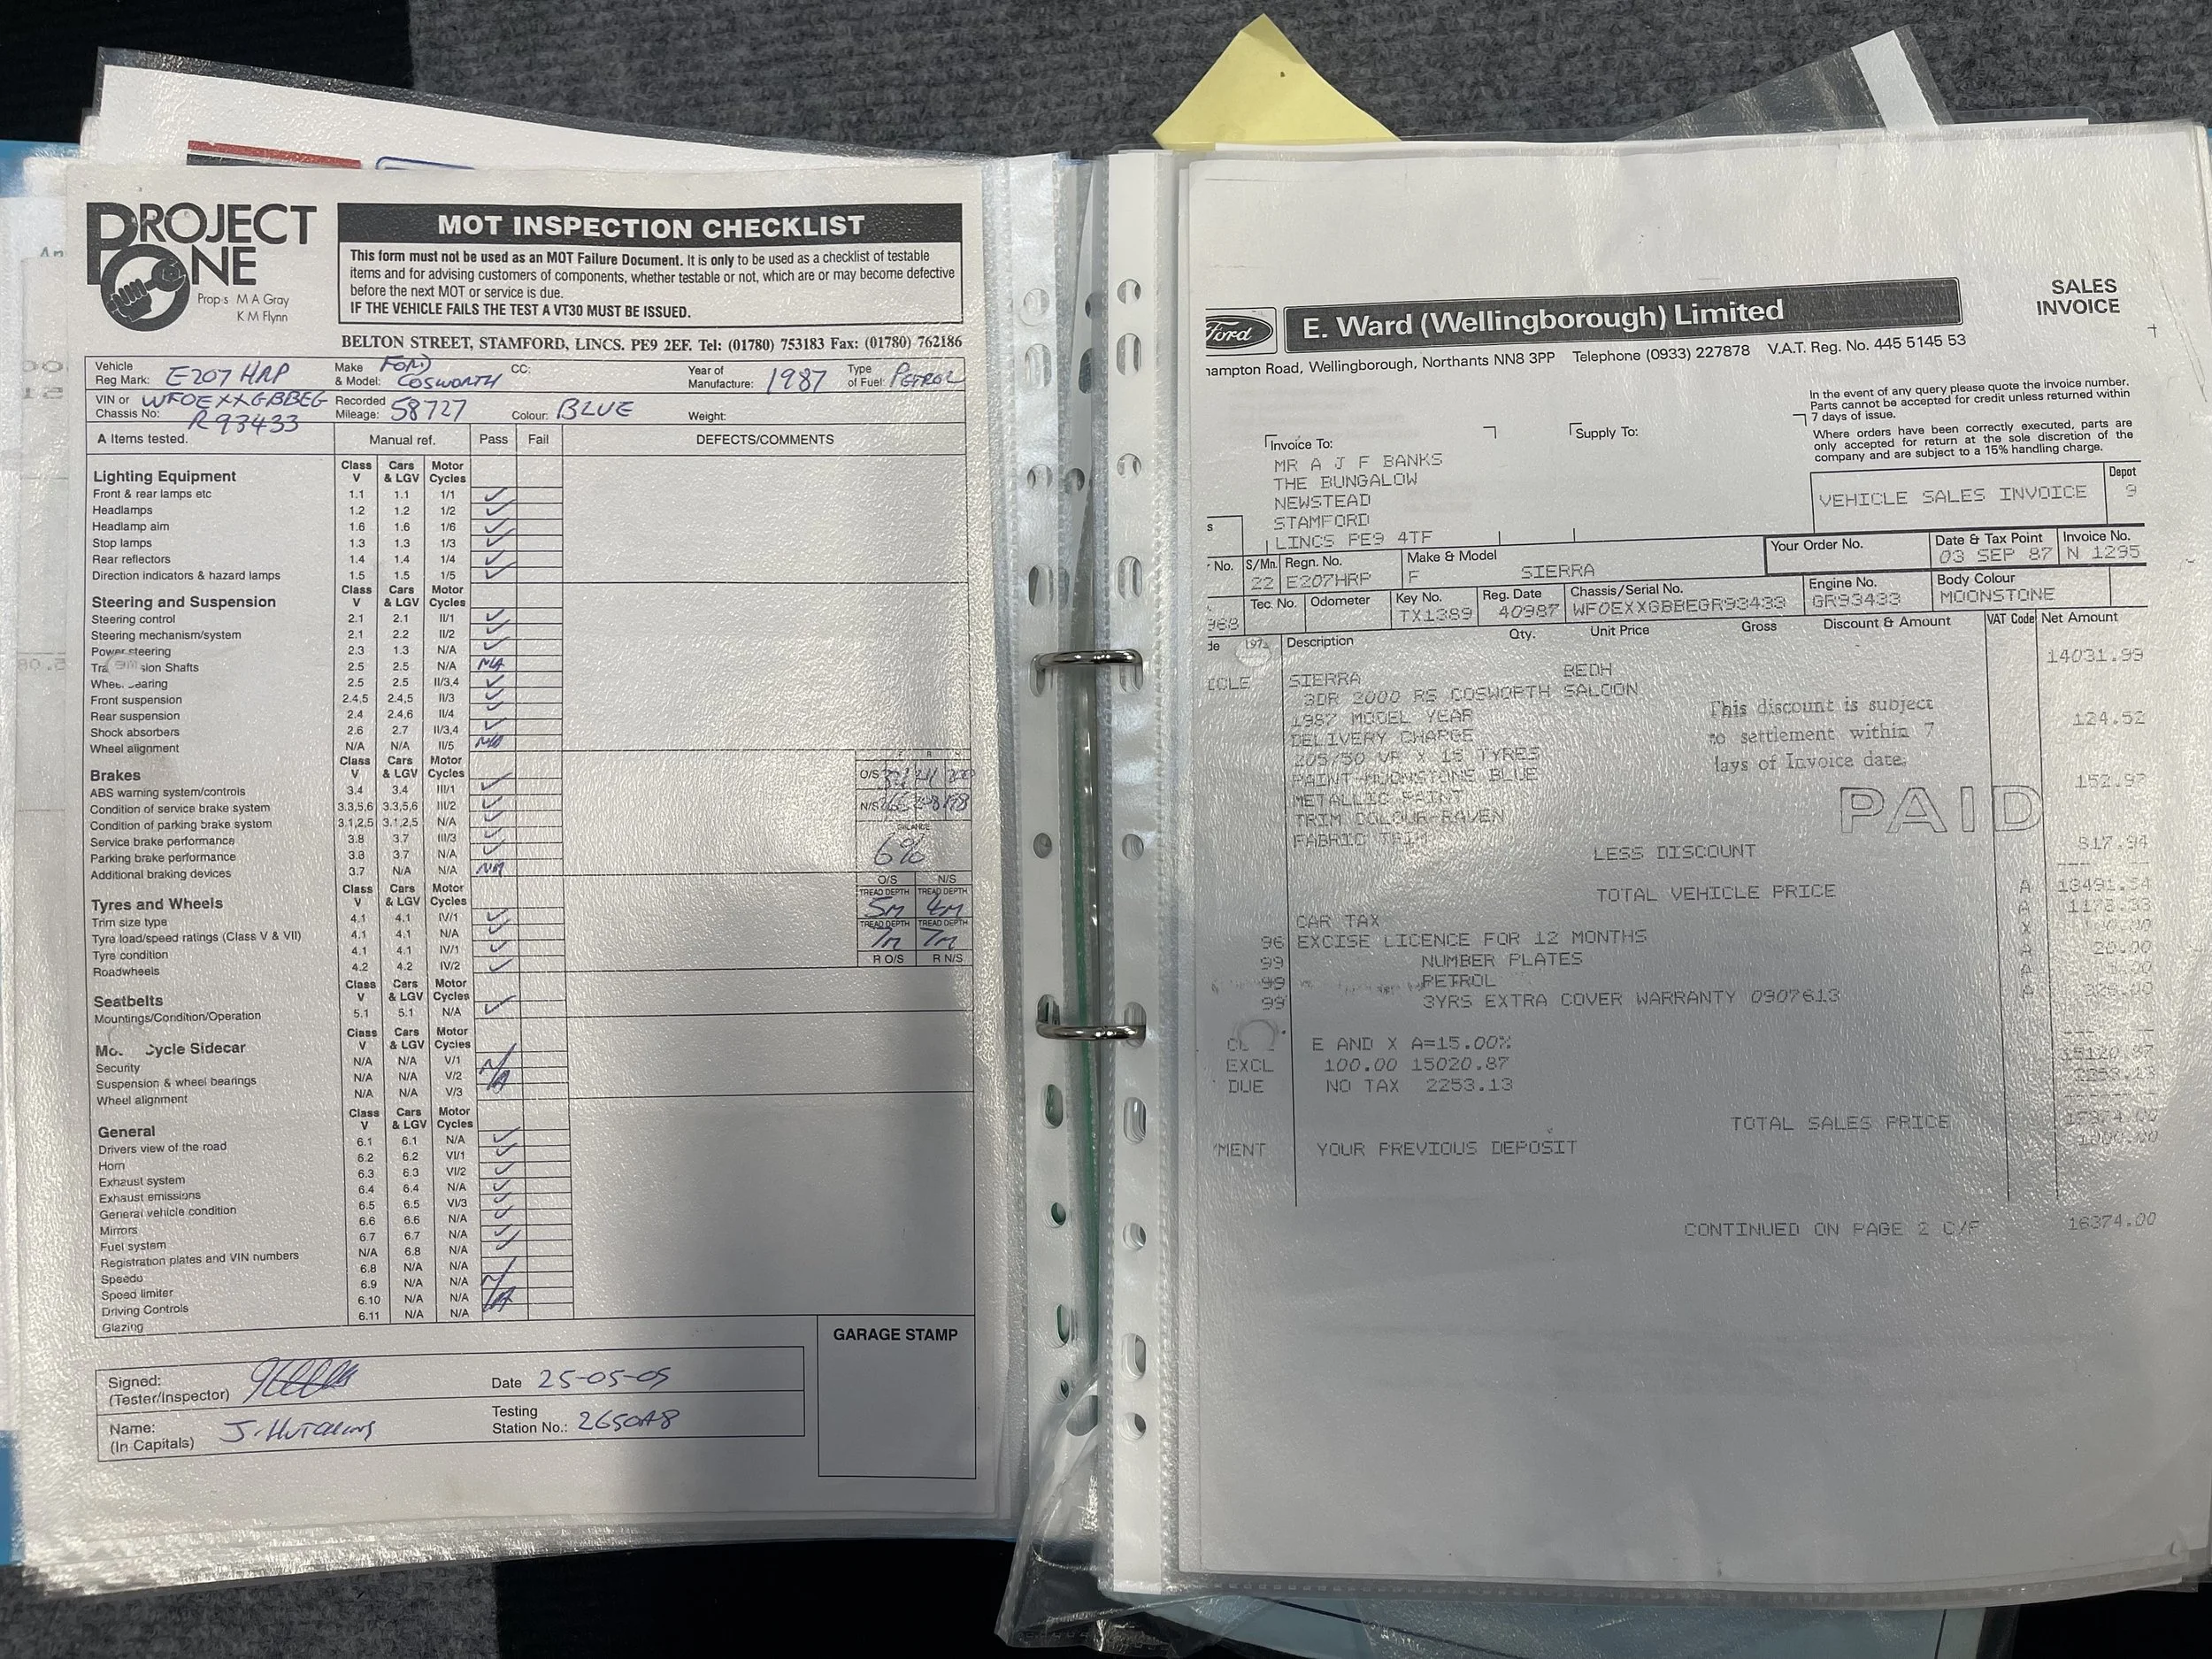 PROJECT
ONE
Prop s M A Gray
K M Flynn
MOT INSPECTION CHECKLIST
This form must not be used as an MOT Failure Document. It is only to be used as a checklist of testable
items and for advising customers of components, whether testable or not, which are or may become defective
before the next MOT or service is due.
IF THE VEHICLE FAILS THE TEST A VT30 MUST BE ISSUED.
BELTON STREET, STAMFORD, LINCS. PE9 2EF. Tel: (01780) 753183 Fax: (01780) 762186
Vehicle Reg Mark: E207 HRP Make & Model: FORD COSWORTH CC: Year of Manufacture: 1987 Type of Fuel: PETROL
VIN or Chassis No: WFOEXXGBBEG R93433 Recorded Mileage: 58727 Colour: BLUE Weight:
A Items tested. Manual ref. Pass Fail DEFECTS/COMMENTS
Lighting Equipment Class V Cars & LGV Motor Cycles
Front & rear lamps etc 1.1 1.1 1/1
Headlamps 1.2 1.2 1/2
Headlamp aim 1.6 1.6 1/6
Stop lamps 1.3 1.3 1/3
Rear reflectors 1.4 1.4 1/4
Direction indicators & hazard lamps 1.5 1.5 1/5
Steering and Suspension Class V Cars & LGV Motor Cycles
Steering control 2.1 2.1 II/1
Steering mechanism/system 2.1 2.2 II/2
Power steering 2.3 1.3 N/A
sion Shafts 2.5 2.5 N/A N/A
Wheel bearing 2.5 2.5 II/3,4
Front suspension 2.4,5 2.4,5 II/3
Rear suspension 2.4 2.4,6 II/4
Shock absorbers 2.6 2.7 II/3,4
Wheel alignment N/A N/A II/5 N/A
Brakes Class V Cars & LGV Motor Cycles
ABS warning system/controls 3.4 3.4 III/1 O/S
Condition of service brake system 3.3,5,6 3.3,5,6 III/2 N/S
Condition of parking brake system 3.1,2,5 3.1,2,5 N/A BALANCE
Service brake performance 3.8 3.7 III/3 6%
Parking brake performance 3.8 3.7 N/A
Additional braking devices 3.7 N/A N/A N/A O/S N/S
Tyres and Wheels Class V Cars & LGV Motor Cycles TREAD DEPTH TREAD DEPTH
Trim size type 4.1 4.1 IV/1 5M 4M
Tyre load/speed ratings (Class V & VII) 4.1 4.1 N/A TREAD DEPTH TREAD DEPTH
Tyre condition 4.1 4.1 IV/1 7M 7M
Roadwheels 4.2 4.2 IV/2 R O/S R N/S
Seatbelts Class V Cars & LGV Motor Cycles
Mountings/Condition/Operation 5.1 5.1 N/A
Cycle Sidecar Class V Cars & LGV Motor Cycles
Security N/A N/A V/1
Suspension & wheel bearings N/A N/A V/2 N/A
Wheel alignment N/A N/A V/3
General Class V Cars & LGV Motor Cycles
Drivers view of the road 6.1 6.1 N/A
Horn 6.2 6.2 VI/1
Exhaust system 6.3 6.3 VI/2
Exhaust emissions 6.4 6.4 N/A
General vehicle condition 6.5 6.5 VI/3
Mirrors 6.6 6.6 N/A
Fuel system 6.7 6.7 N/A
Registration plates and VIN numbers N/A 6.8 N/A
Speedo 6.8 N/A N/A
Speed limiter 6.9 N/A N/A N/A
Driving Controls 6.10 N/A N/A
Glazing 6.11 N/A N/A
GARAGE STAMP
Signed: (Tester/Inspector) Date 25-05-05
Name: (In Capitals) J. HUTCHINS Testing Station No.: 2650A8
Ford
E. Ward (Wellingborough) Limited
SALES
INVOICE
hampton Road, Wellingborough, Northants NN8 3PP Telephone (0933) 227878 V.A.T. Reg. No. 445 5145 53
In the event of any query please quote the invoice number.
Parts cannot be accepted for credit unless returned within
7 days of issue.
Where orders have been correctly executed, parts are
only accepted for return at the sole discretion of the
company and are subject to a 15% handling charge.
Invoice To: Supply To:
MR A J F BANKS
THE BUNGALOW
NEWSTEAD
STAMFORD
LINCS PE9 4TF
VEHICLE SALES INVOICE Depot 9
No. S/Mn. 22 Regn. No. E207HRP Make & Model F SIERRA Your Order No. Date & Tax Point 03 SEP 87 Invoice No. N 1295
968 Tec. No. Odometer Key No. TX1389 Reg. Date 40987 Chassis/Serial No. WFOEXXGBBEGR93433 Engine No. GR93433 Body Colour MOONSTONE
de Description Qty. Unit Price Gross Discount & Amount VAT Code Net Amount
ICLE SIERRA BEDH 14031.99
3DR 2000 RS COSWORTH SALOON
1987 MODEL YEAR
DELIVERY CHARGE 124.52
205/50 VR X 15 TYRES
PAINT-MOONSTONE BLUE
METALLIC PAINT 152.97
TRIM COLOUR-RAVEN
FABRIC TRIM
This discount is subject
to settlement within 7
days of Invoice date.
PAID
LESS DISCOUNT 817.94
TOTAL VEHICLE PRICE A 13491.54
CAR TAX A
96 EXCISE LICENCE FOR 12 MONTHS X
99 NUMBER PLATES A 20.00
99 PETROL A
99 3YRS EXTRA COVER WARRANTY 0907613 A
E AND X A=15.00%
EXCL 100.00 15020.87 15120.87
DUE NO TAX 2253.13 2253.13
TOTAL SALES PRICE 17374.00
'MENT YOUR PREVIOUS DEPOSIT 1000.00
CONTINUED ON PAGE 2 C/F 16374.00